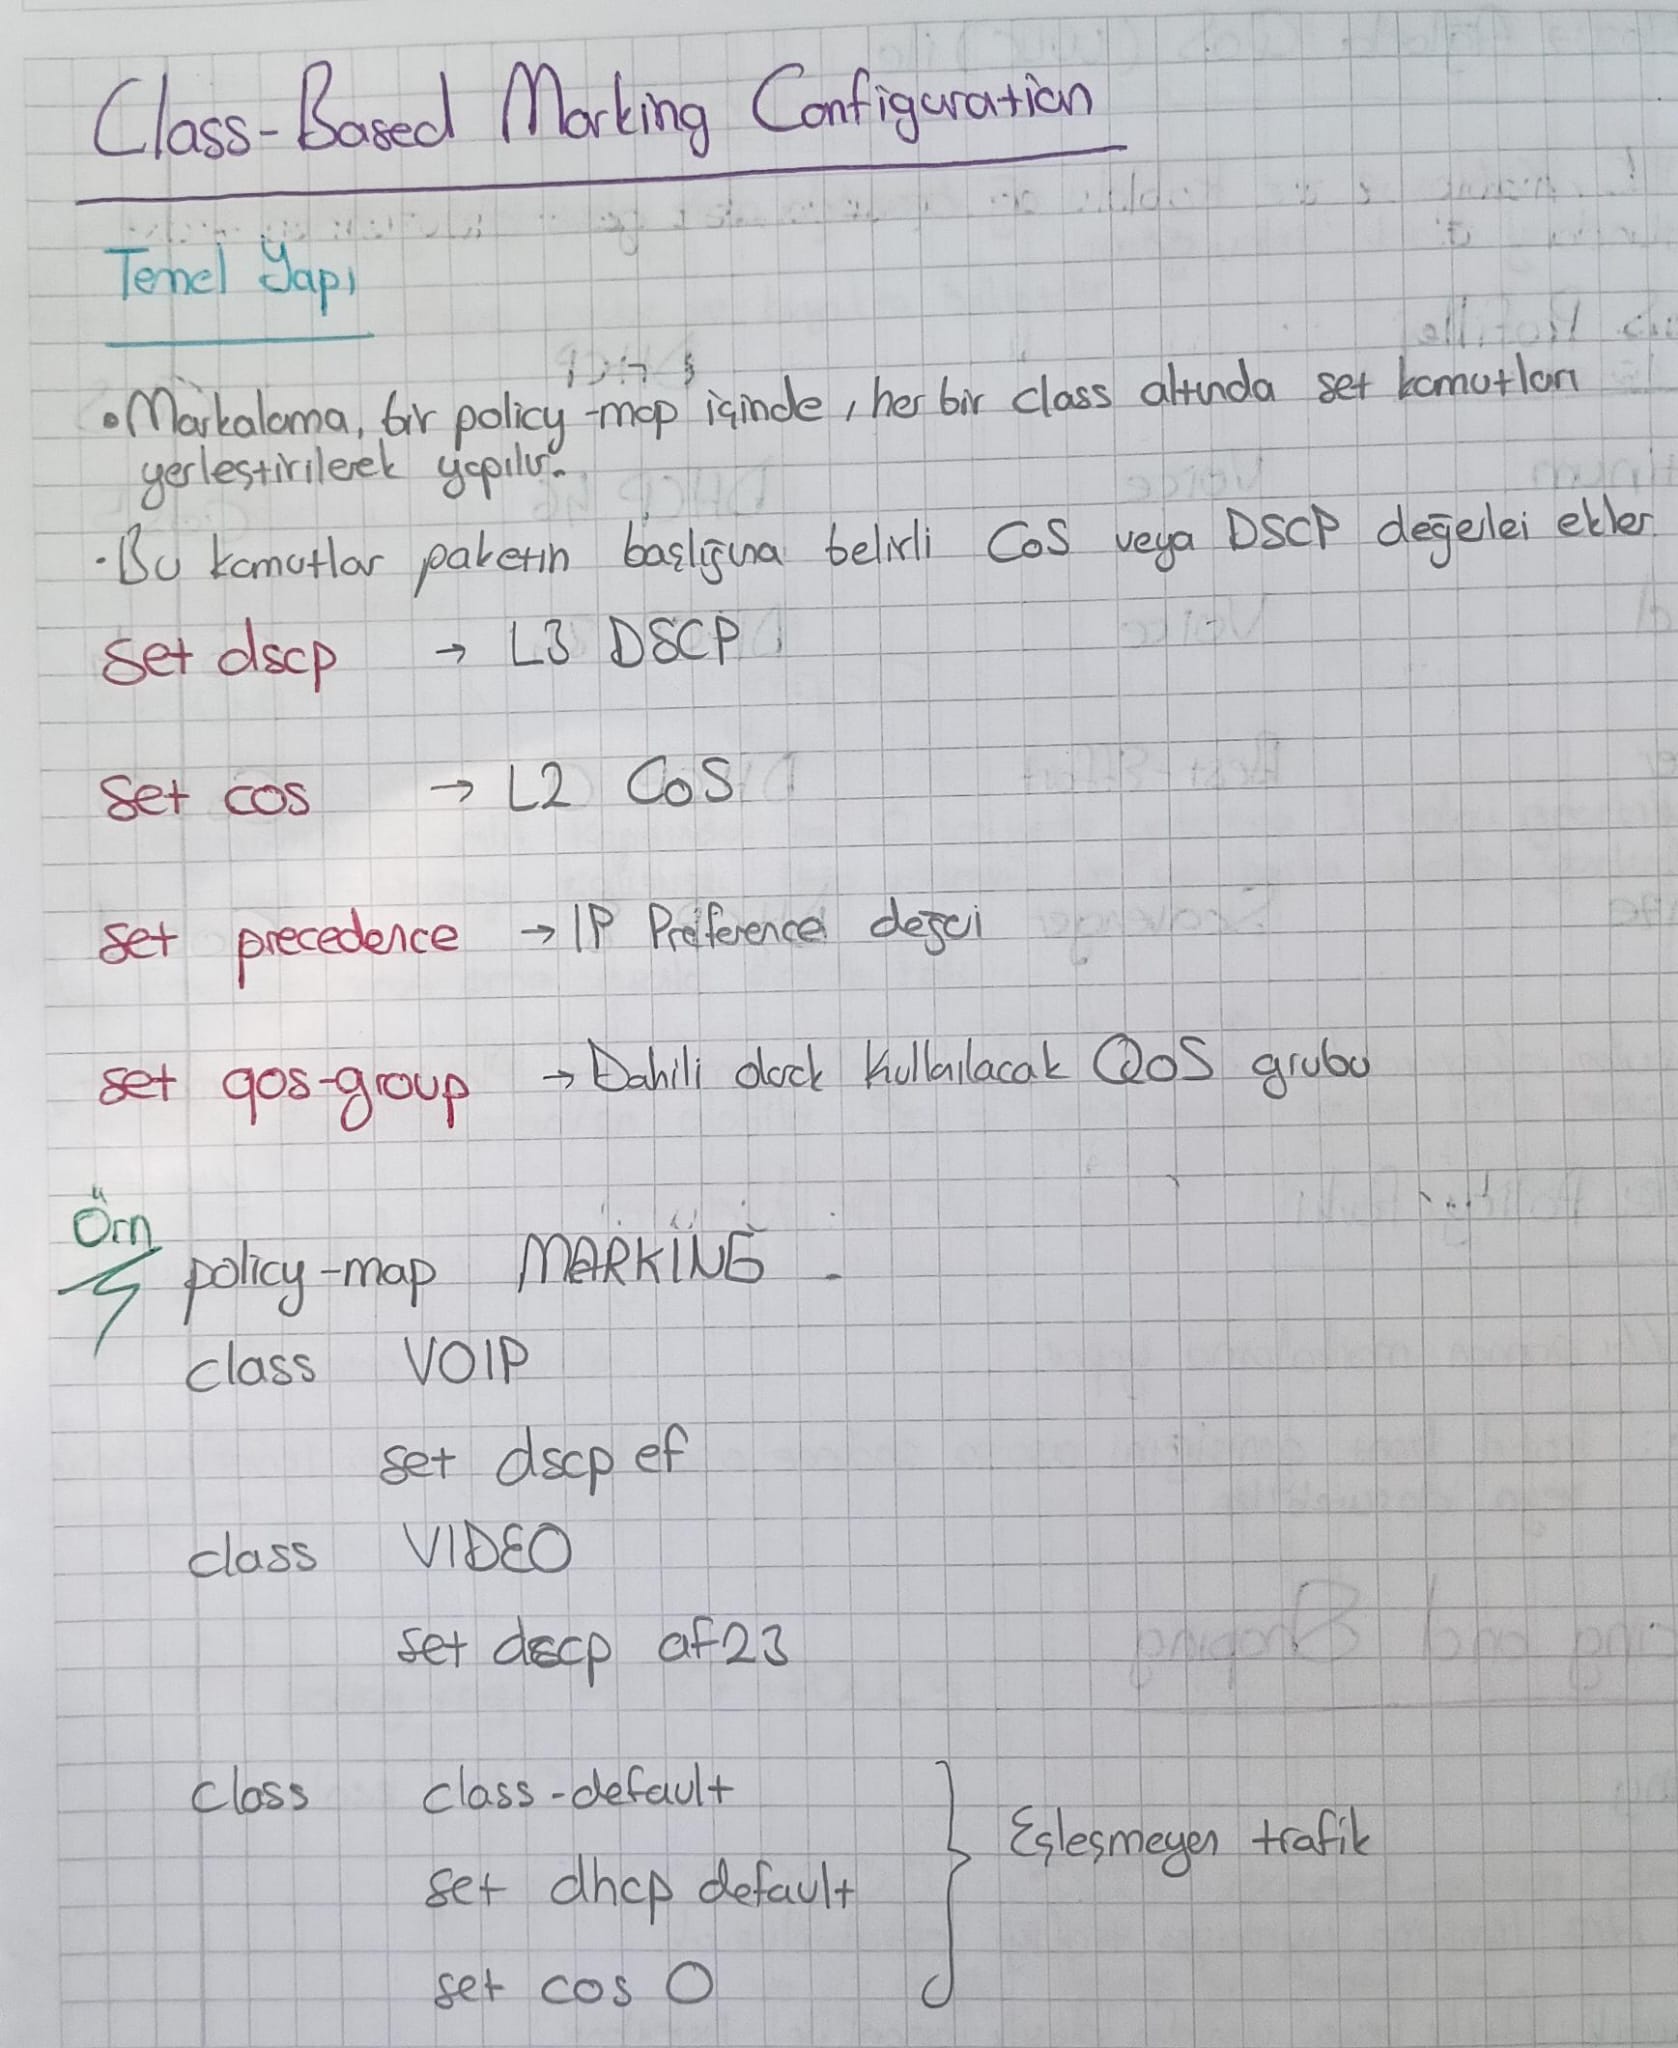 Class-Based Marking Configuration
Temel Yapı
• Markalama, bir policy-map içinde, her bir class altında set komutları
yerleştirilerek yapılır.
• Bu komutlar paketin başlığına belirli CoS veya DSCP değerlei ekler
set dscp → L3 DSCP
set cos → L2 CoS
set precedence → IP Preference değeri
set qos-group → Dahili olarak kullanılacak QoS grubu
Örn
policy-map MARKİNG
class VOIP
set dscp ef
class VIDEO
set dscp af23
class class-default
set dhcp default
set cos 0
Eşleşmeyen trafik